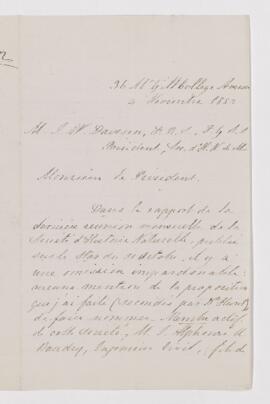 36 McGill College Avenue
2 Novembre 1882
M. J. W. Dawson, F. R. S., F. G. S.
Président, Soc. d'H. N. de M.
Monsieur le Président.
Dans le rapport de la
dernière réunion mensuelle de la
Société d'Histoire Naturelle, publié
dans le Star du, il y a
une omission impardonnable:
aucune mention de la proposition
que j'ai faite (secondée par Dr
de faire nommer Membre actif
de cette société, M. Alphonse
Ingénieur Civil, fils de